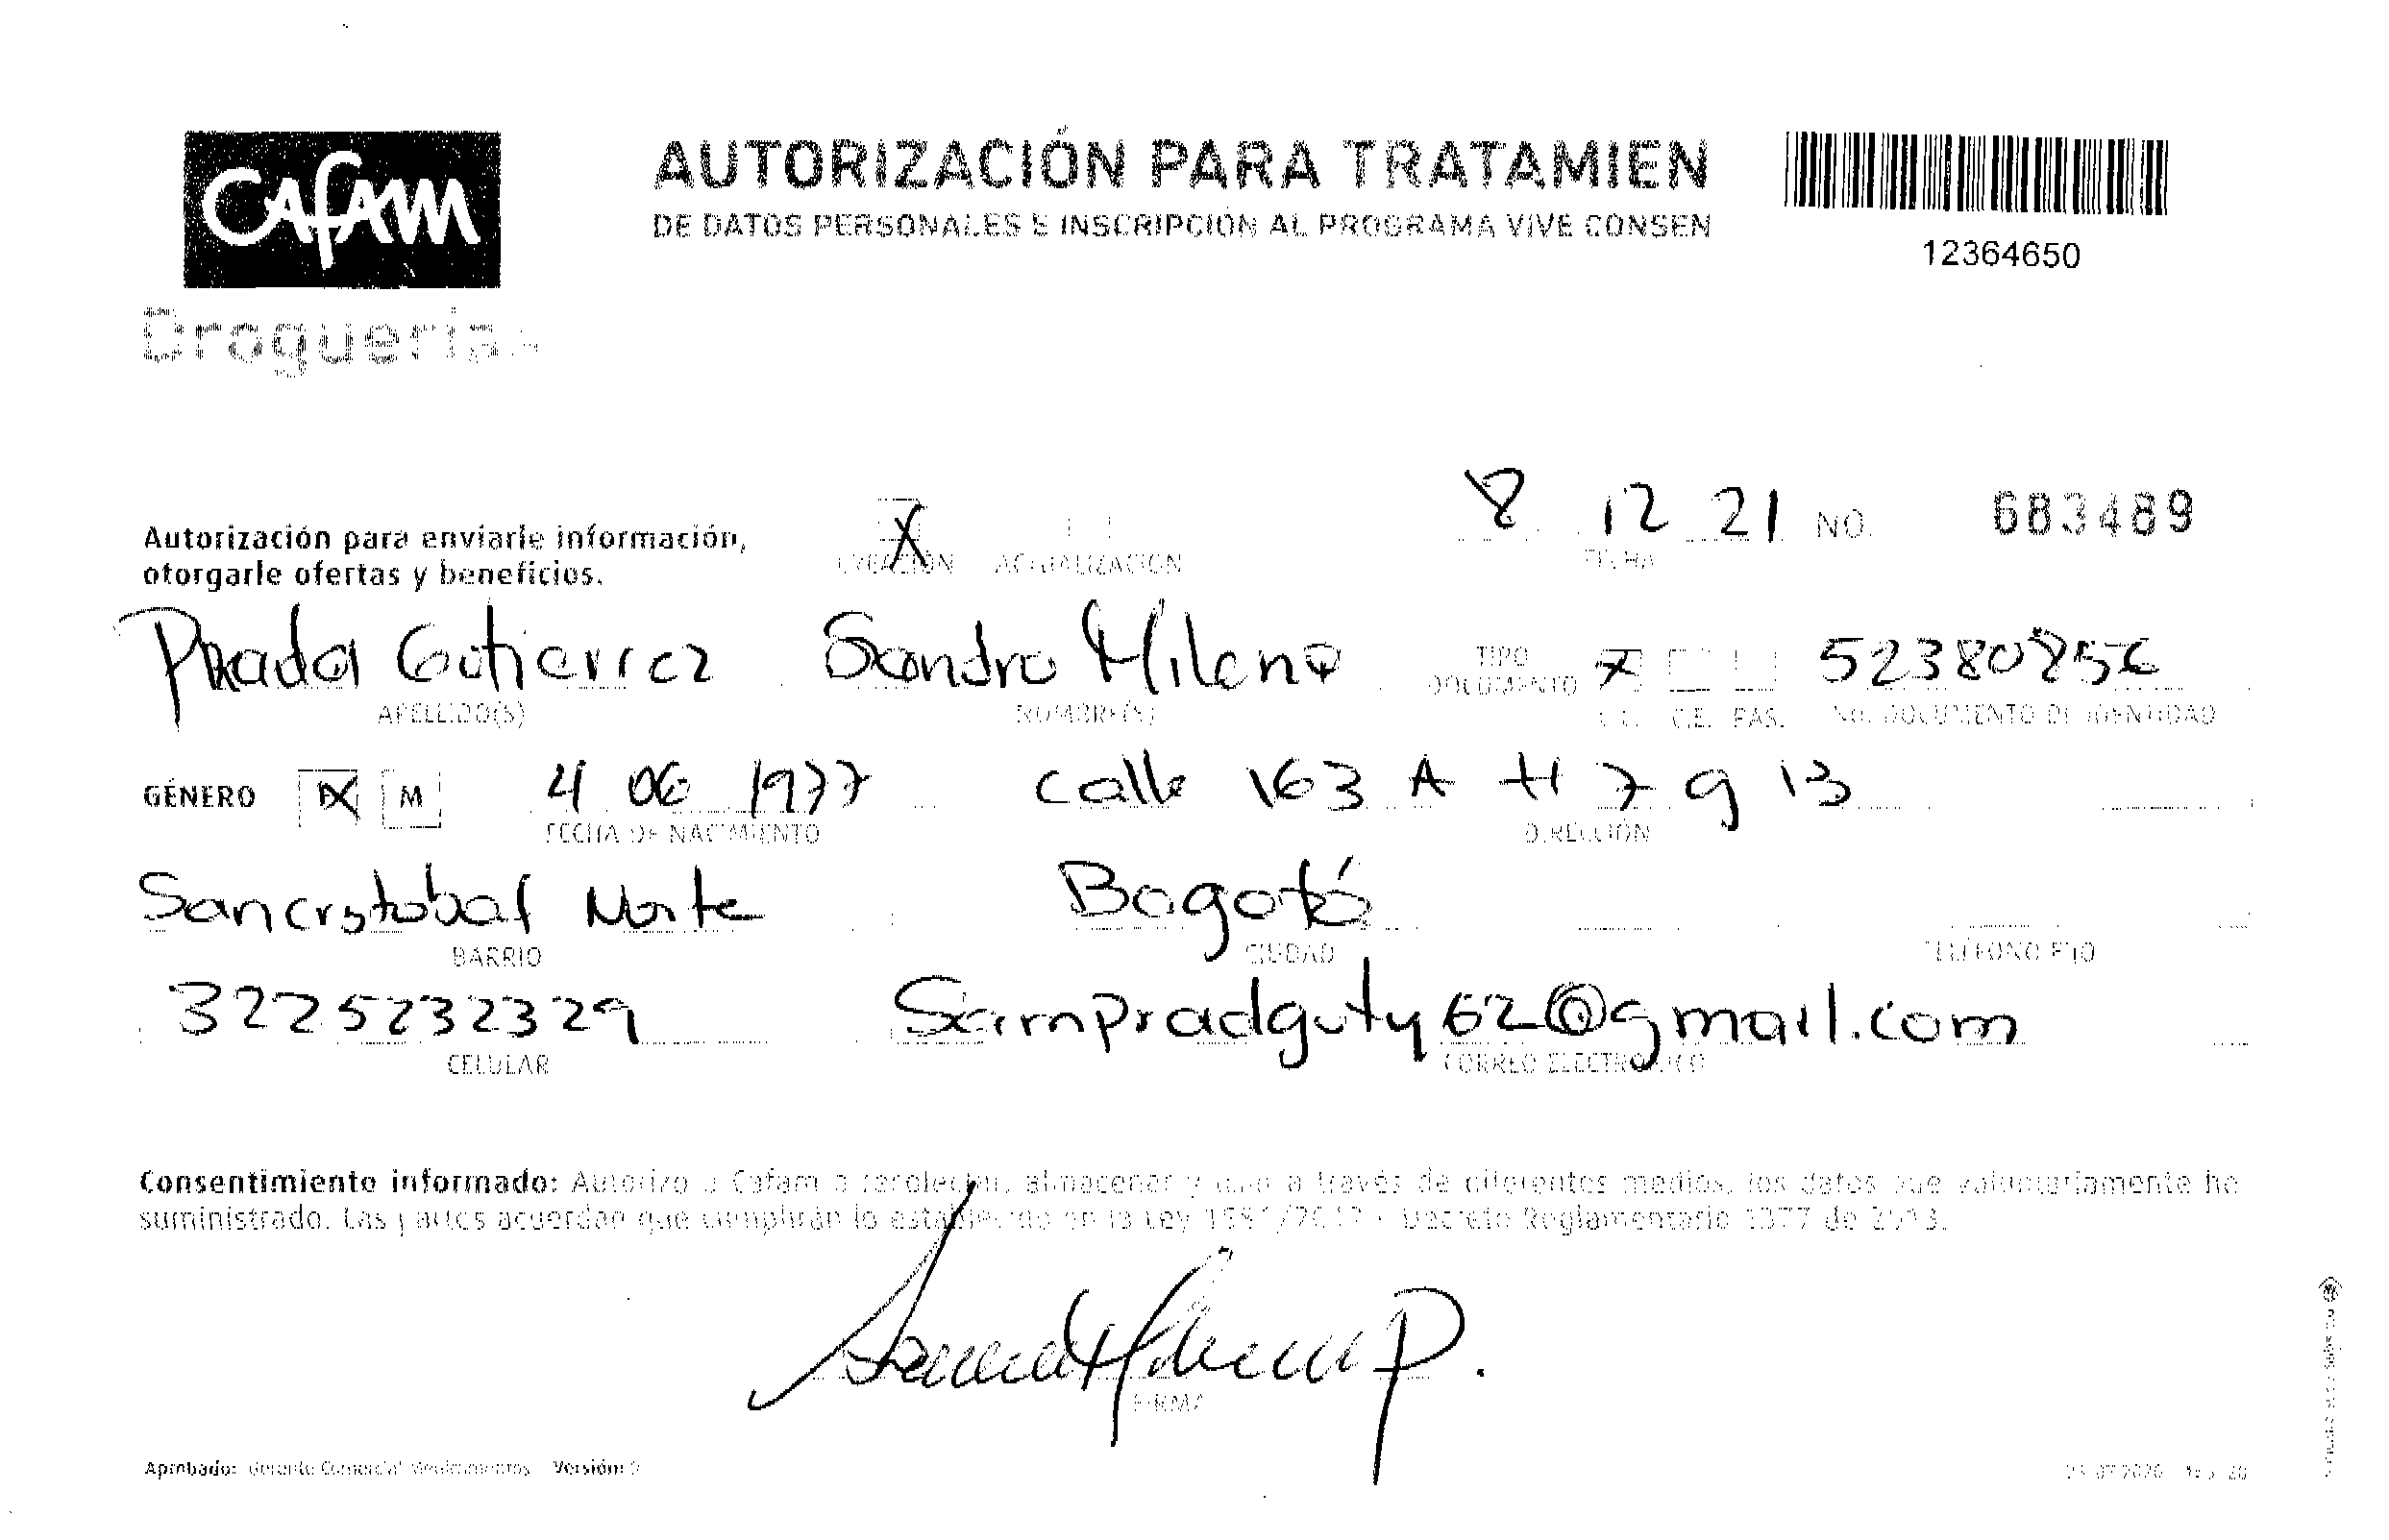 Cafam
Droguerías
AUTORIZACIÓN PARA TRATAMIEN
DE DATOS PERSONALES E INSCRIPCIÓN AL PROGRAMA VIVE CONSEN
12364650
Autorización para enviarle información,
otorgarle ofertas y beneficios.
X CREACIÓN ACTUALIZACIÓN
8 12 21 NO. 683489
FECHA
Prada Gutierrez Sandra Milena TIPO DOCUMENTO X 52380856
APELLIDO(S) NOMBRE(S) C.C. C.E. PAS. No. DOCUMENTO DE IDENTIDAD
GÉNERO X M 4 06 1977 calle 163 A # 7 g 13
FECHA DE NACIMIENTO DIRECCIÓN
Sancrstobal Norte Bogotá
BARRIO CIUDAD TELÉFONO FIJO
3225232329 Sampradguty62@gmail.com
CELULAR CORREO ELECTRÓNICO
Consentimiento informado: Autorizo a Cafam a recolectar, almacenar y usar a través de diferentes medios, los datos que voluntariamente he
suministrado. Las partes acuerdan que cumplirán lo establecido en la Ley 1581/2012 y Decreto Reglamentario 1377 de 2013.
Sandra Milena P.
FIRMA
Aprobado: Gerente Comercial Medicamentos Versión: 9